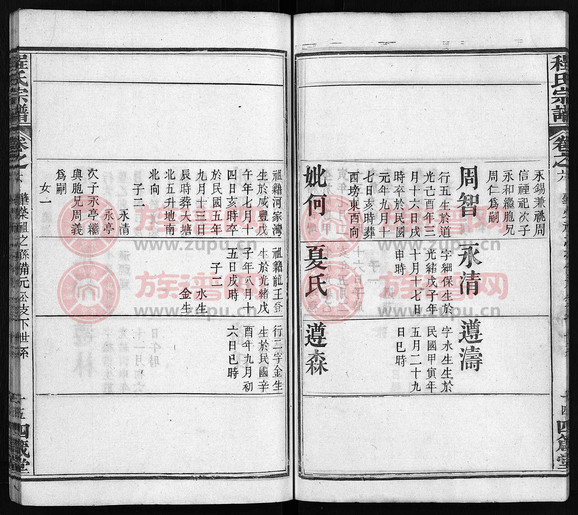 程氏宗譜
卷之六
永錫兼祧周
信禋祀次子
永和繼胞兄
周仁爲嗣
周智
行五生於道
光己酉年三
月十六日戌
時卒於民國
元年九月十
七日亥時葬
酉塝東西向
永清
字細保生於
光緒戊子年
十月十七日
申時
遵濤
字水生生於
民國甲寅年
五月二十九
日巳時
妣何
祖籍河家灣
生於咸豐戊
午年七月十
四日亥時卒
於民國五年
九月十三日
辰時葬大塘
北五升地南
北向
子二
永清
永亭
次子永亭繼
與胞兄周義
爲嗣
女一
夏氏
祖籍龍王
生於光緒戊
子年八月十
五日戌時
子二
水生
金生
遵森
行二字金生
生於民國辛
酉年九月初
六日巳時
四箴堂
程氏宗譜
卷之六
四箴堂
族谱网
www.zupu.cn